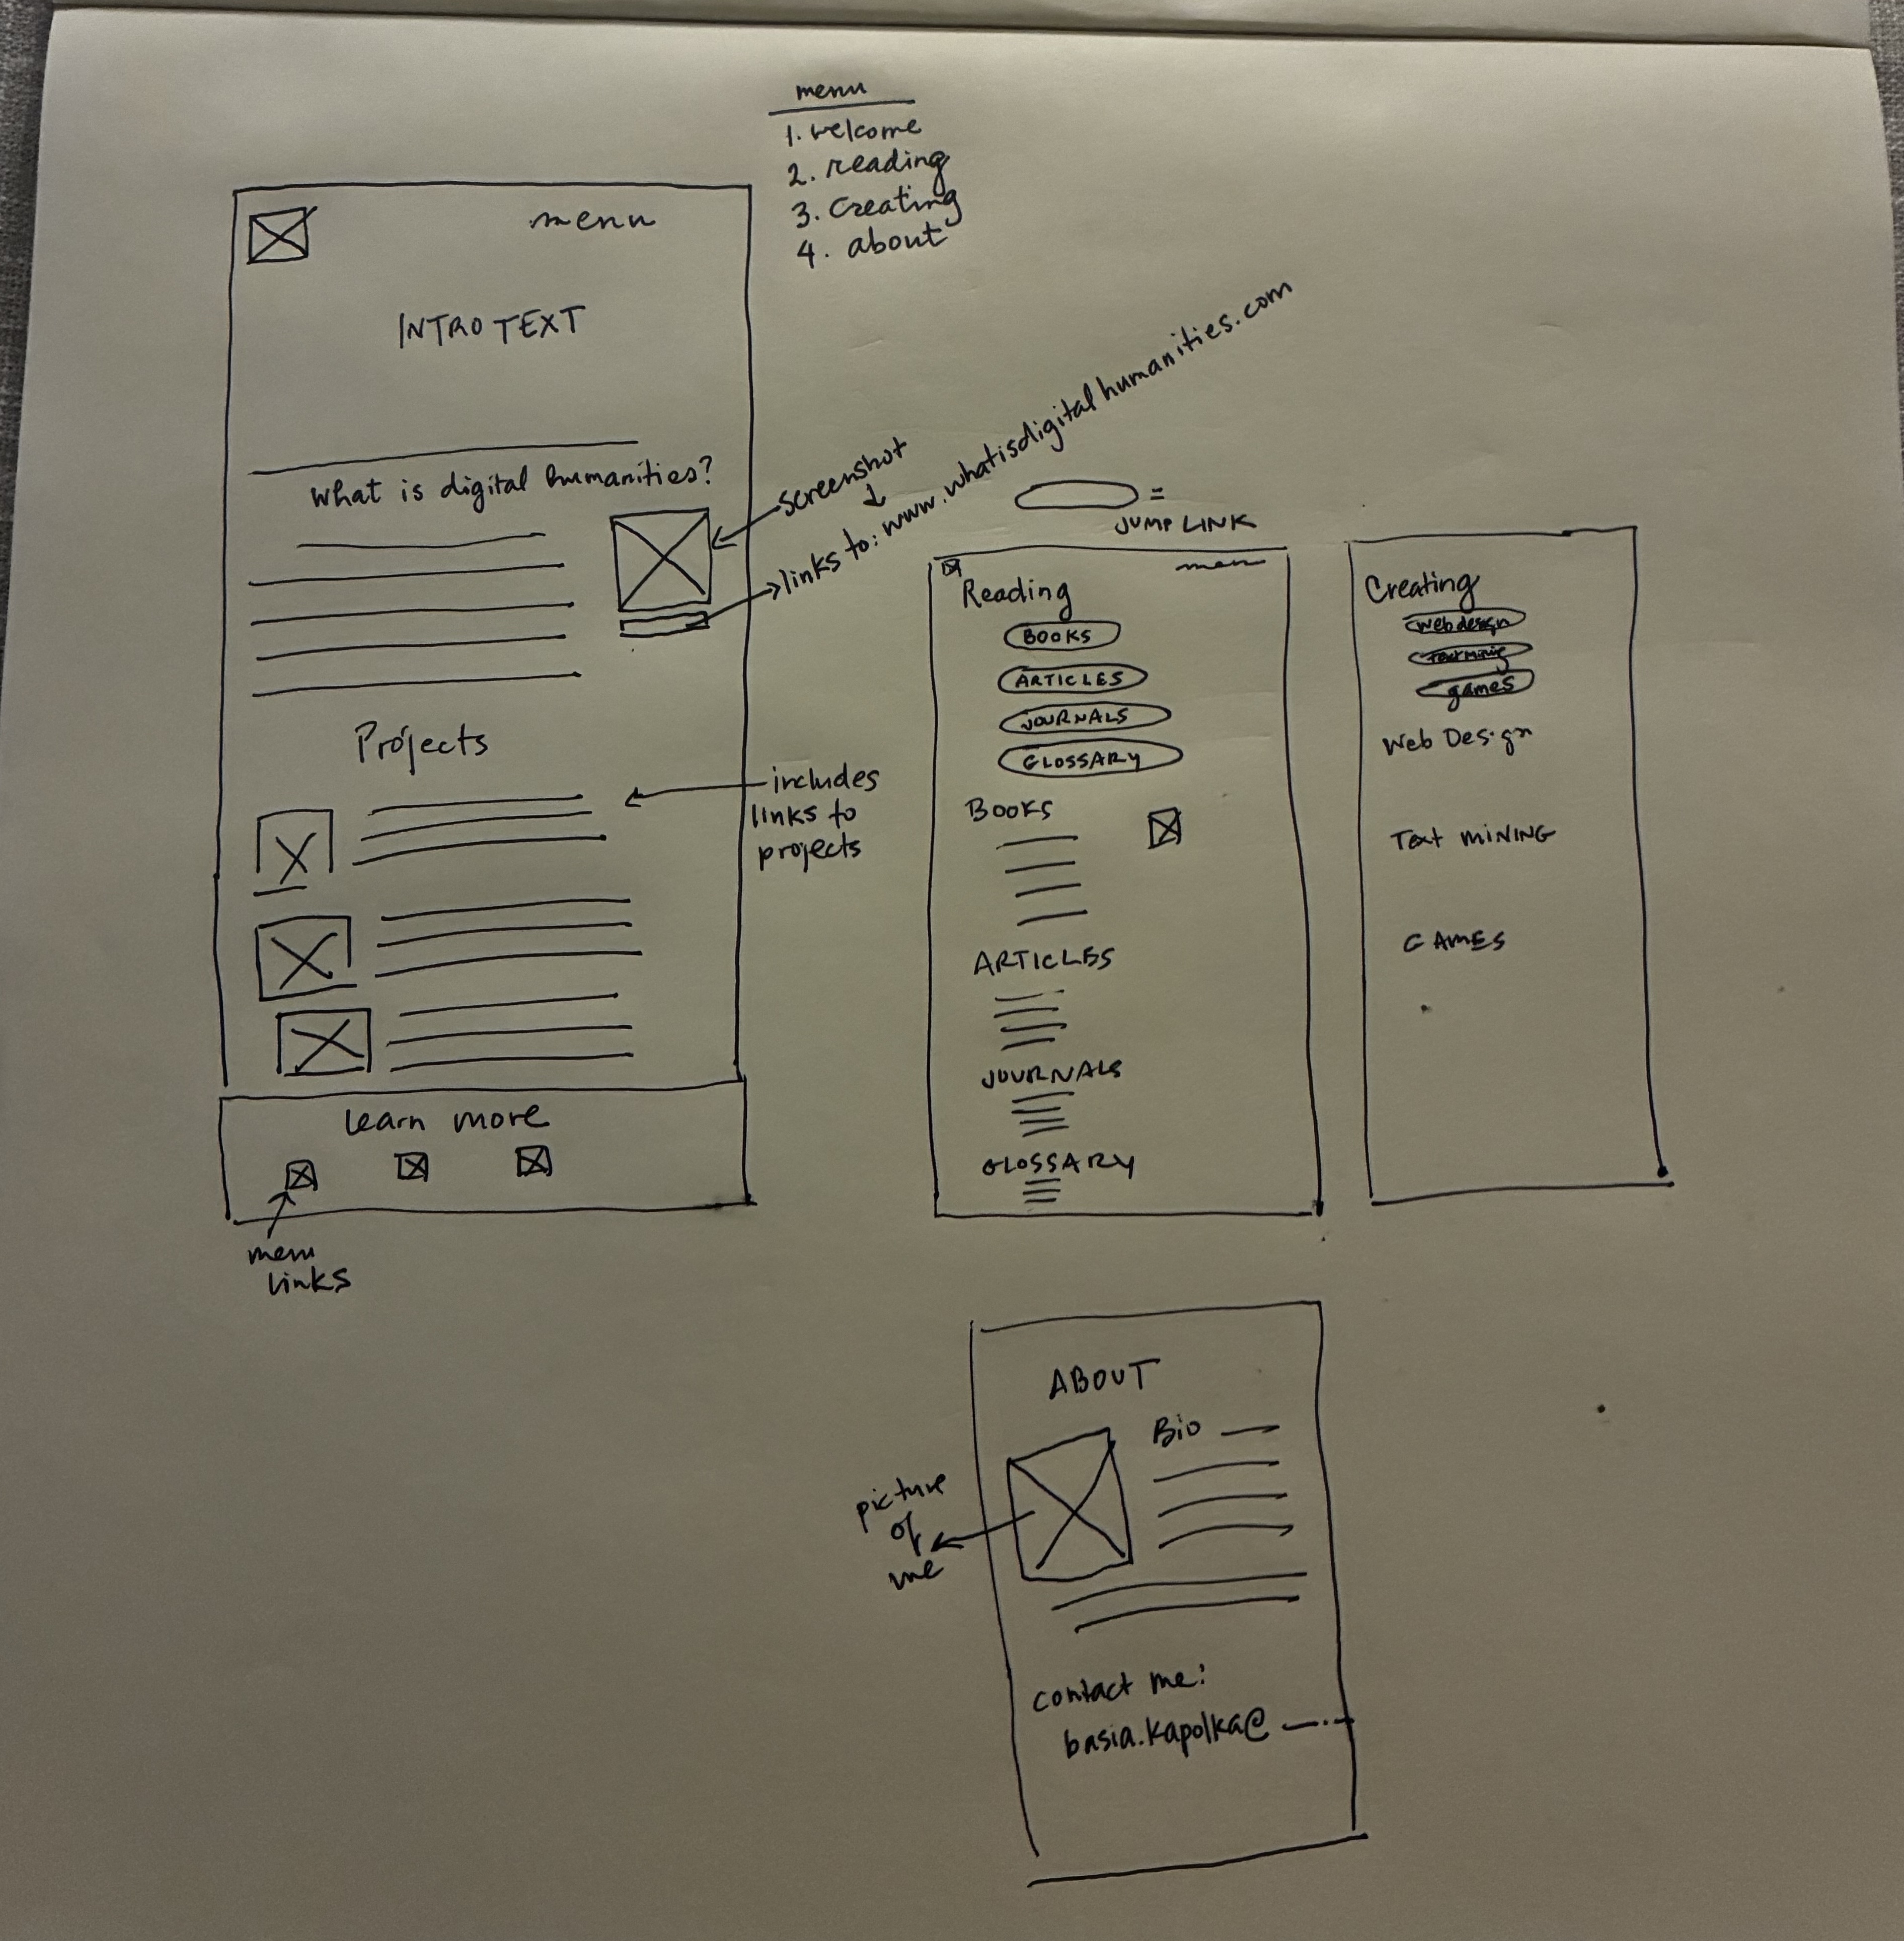 menu
1. welcome
2. reading
3. creating
4. about
menu
INTRO TEXT
What is digital humanities?
screenshot
links to: www.whatisdigitalhumanities.com
Projects
includes
links to
projects
learn more
menu
links
= 
JUMP LINK
menu
Reading
BOOKS
ARTICLES
JOURNALS
GLOSSARY
BOOKS
ARTICLES
JOURNALS
GLOSSARY
Creating
web design
text mining
games
Web Design
Text MINING
GAMES
ABOUT
Bio
picture
of
me
contact me:
basia.kapolka@